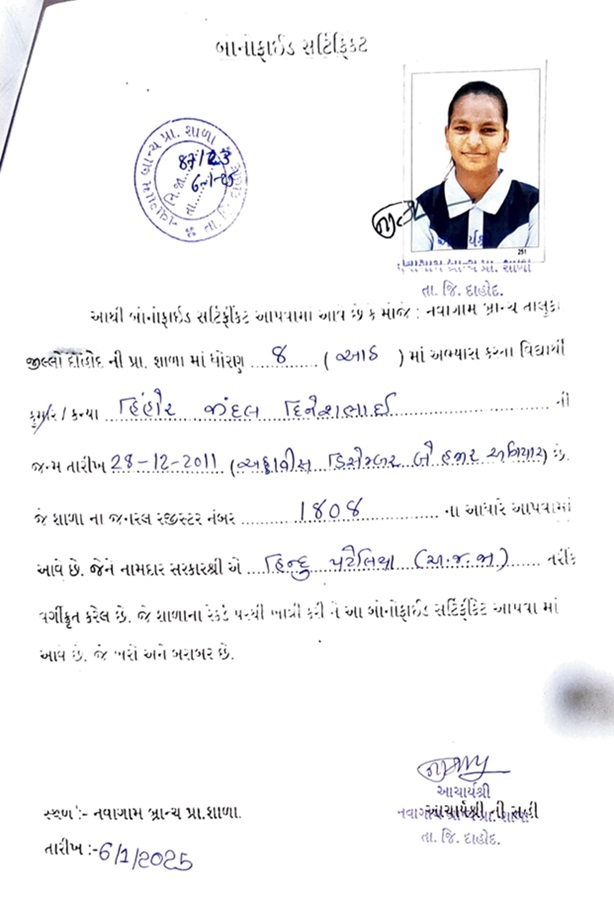 બોનોફાઈડ સર્ટિફિકેટ
નવાગામ બ્રાન્ચ પ્રા. શાળા
તા. જિ. દાહોદ
નિ.જા. 87/23
તા. 6-1-25
251
આચાર્યશ્રી
નવાગામ બ્રાન્ચ પ્રા. શાળા
તા. જિ. દાહોદ.
આથી બોનોફાઈડ સર્ટિફીકેટ આપવામાં આવે છે કે મોજે : નવાગામ બ્રાન્ચ તાલુકા
જીલ્લો દાહોદ ની પ્રા. શાળા માં ધોરણ ....8.... ( આઠ ) માં અભ્યાસ કરતા વિદ્યાર્થી
કુમાર / કન્યા ... દિનેશભાઈ ... ની
જન્મ તારીખ 28-12-2011 (અઠ્ઠાવીસ ડિસેમ્બર બે હજાર અગિયાર) છે.
જે શાળા ના જનરલ રજીસ્ટર નંબર ....1808.... ના આધારે આપવામાં
આવે છે. જેને નામદાર સરકારશ્રી એ ...હિન્દુ પટેલિયા (અ.જ.જા.)... તરીકે
વર્ગીકૃત કરેલ છે. જે શાળાના રેકર્ડ પરથી ખાત્રી કરી ને આ બોનોફાઈડ સર્ટિફિકેટ આપવા માં
આવે છે. જે ખરો અને બરાબર છે.
આચાર્યશ્રી
નવાગામ બ્રાન્ચ પ્રા. શાળા
આચાર્યશ્રી ની સહી
તા. જિ. દાહોદ.
સ્થળ :- નવાગામ બ્રાન્ચ પ્રા.શાળા.
તારીખ :- 6/1/2025